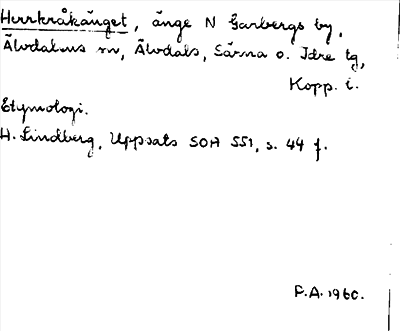 Herrkråkänget, änge N Garbergs by,
Älvdalens sn, Älvdals, Särna o. Idre tg,
Kopp. l.
Etymologi.
H. Lindberg, Uppsats SOA 551, s. 44 f.
F.A. 1960.